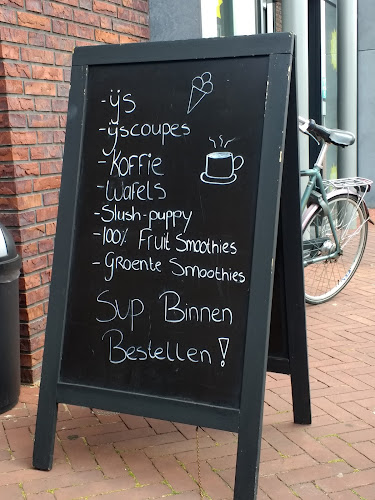 -ijs
-ijscoupes
-Koffie
-Wafels
-Slush-puppy
-100% Fruit Smoothies
-Groente Smoothies
Svp Binnen
Bestellen!